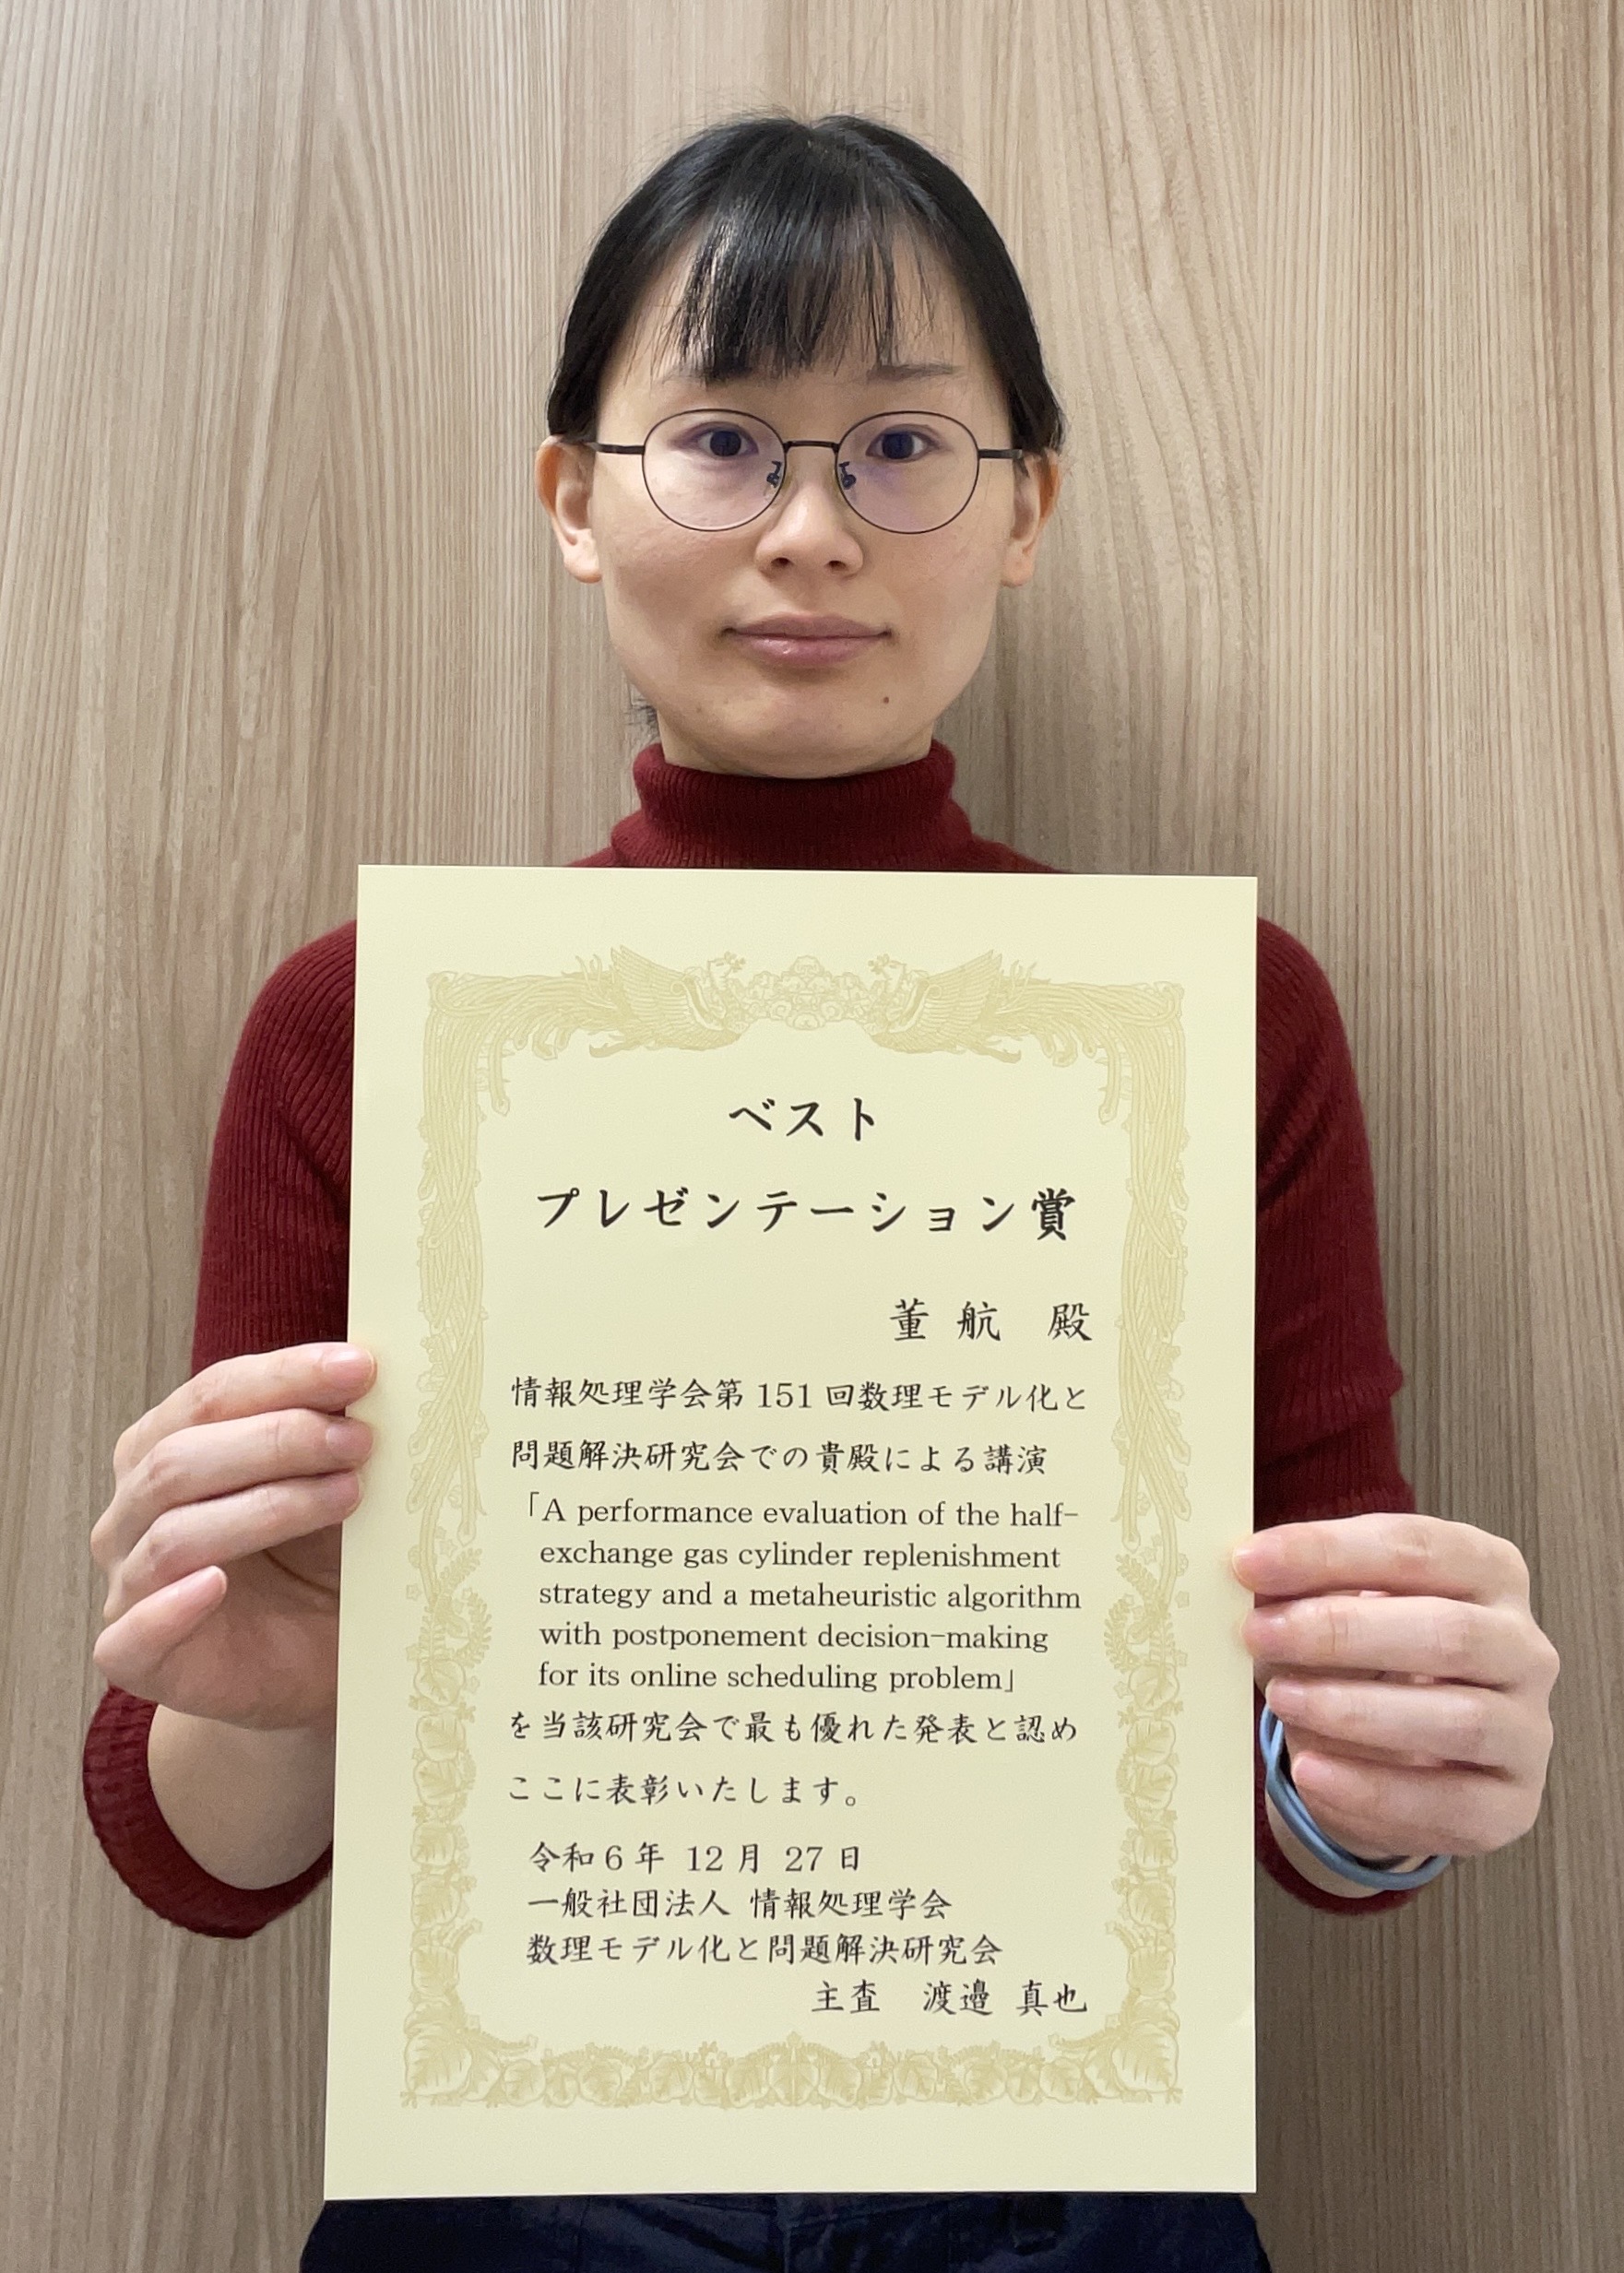 ベスト
プレゼンテーション賞
董 航　殿
情報処理学会第 151 回数理モデル化と
問題解決研究会での貴殿による講演
「A performance evaluation of the half-
exchange gas cylinder replenishment
strategy and a metaheuristic algorithm
with postponement decision-making
for its online scheduling problem」
を当該研究会で最も優れた発表と認め
ここに表彰いたします。
令和 6 年 12 月 27 日
一般社団法人 情報処理学会
数理モデル化と問題解決研究会
主査　渡邉 真也